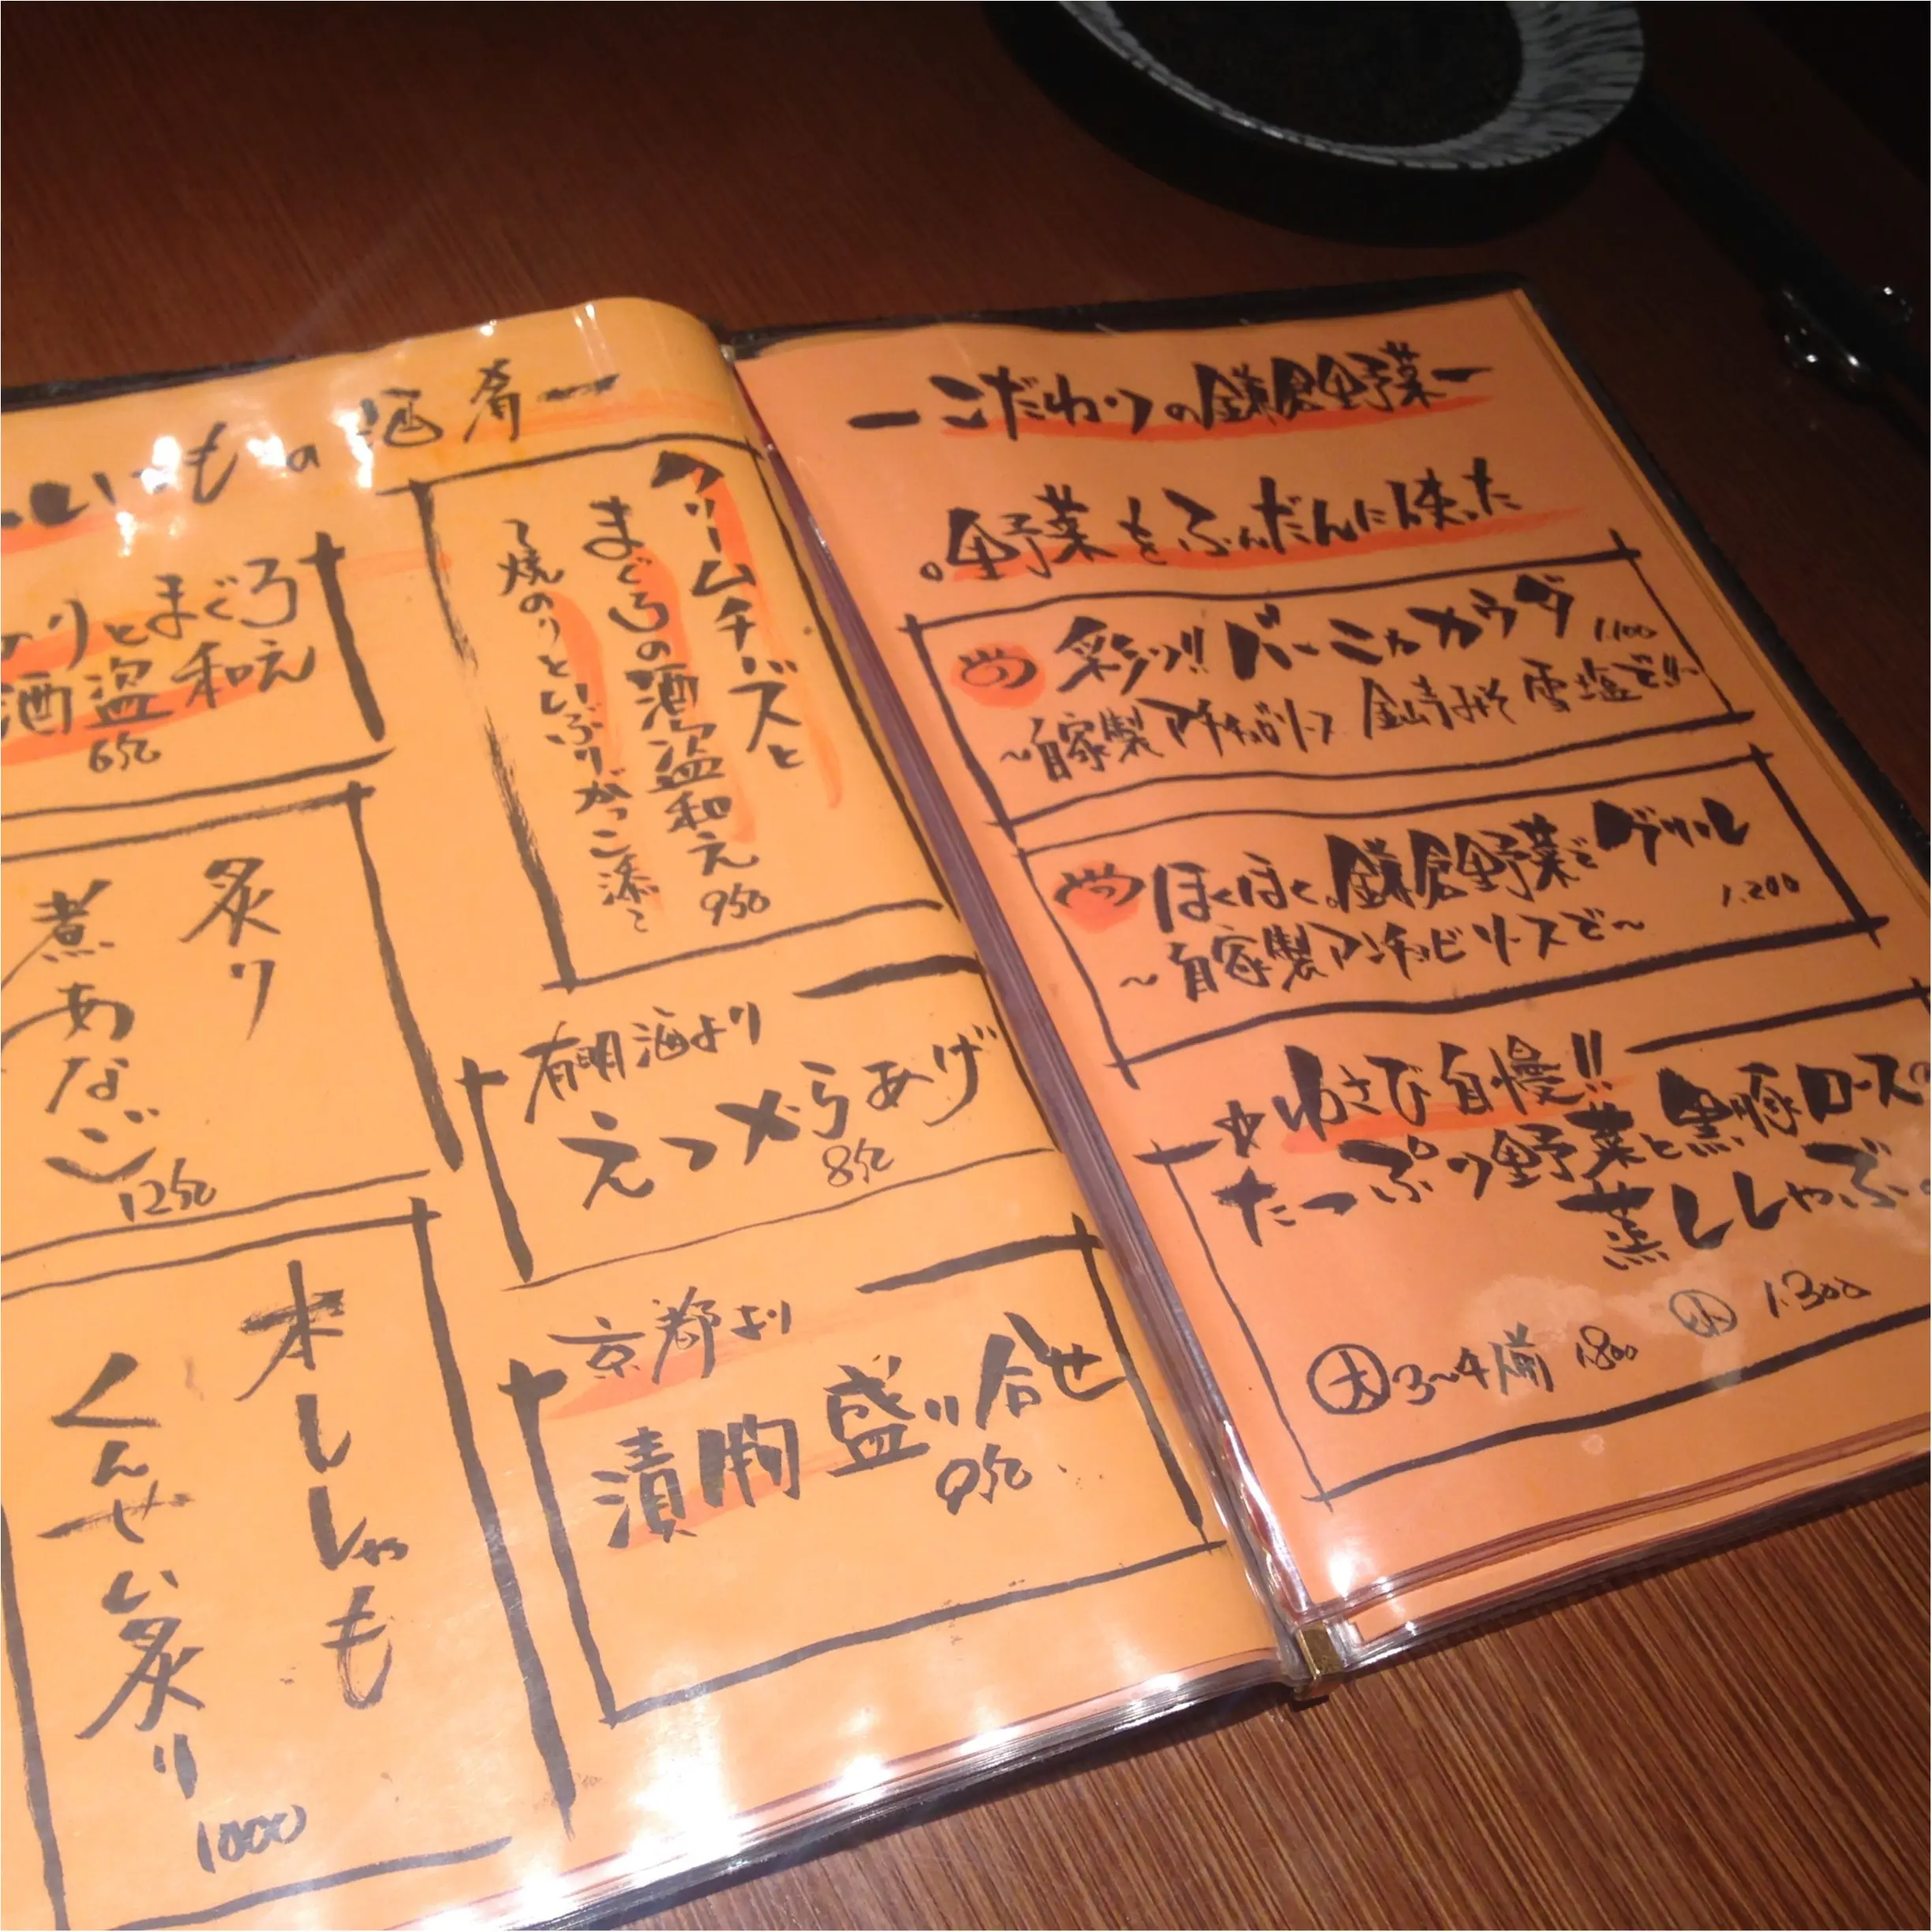 いつもの酒肴ー
のりとまぐろ
酒盗和え
650
炙り
煮あなご
1250
本ししゃも
くんせい炙り
1000
クリームチーズと
まぐろの酒盗和え
950
〜焼のりといぶりがっこ添〜
有明海より
えつからあげ
850
京都より
漬物盛り合せ
950
ーこだわりの鎌倉野菜ー
。野菜をふんだんに使った
彩り!!バーニャカウダ
1.100
〜自家製アンチョビソース 金山寺みそ 雪塩で!!〜
ほくほく。鎌倉野菜でグリル
1.200
〜自家製アンチョビソースで〜
☆わさび自慢!!
たっぷり野菜と黒豚ロースの
蒸ししゃぶ。
大3〜4人前 1.800
小 1.300